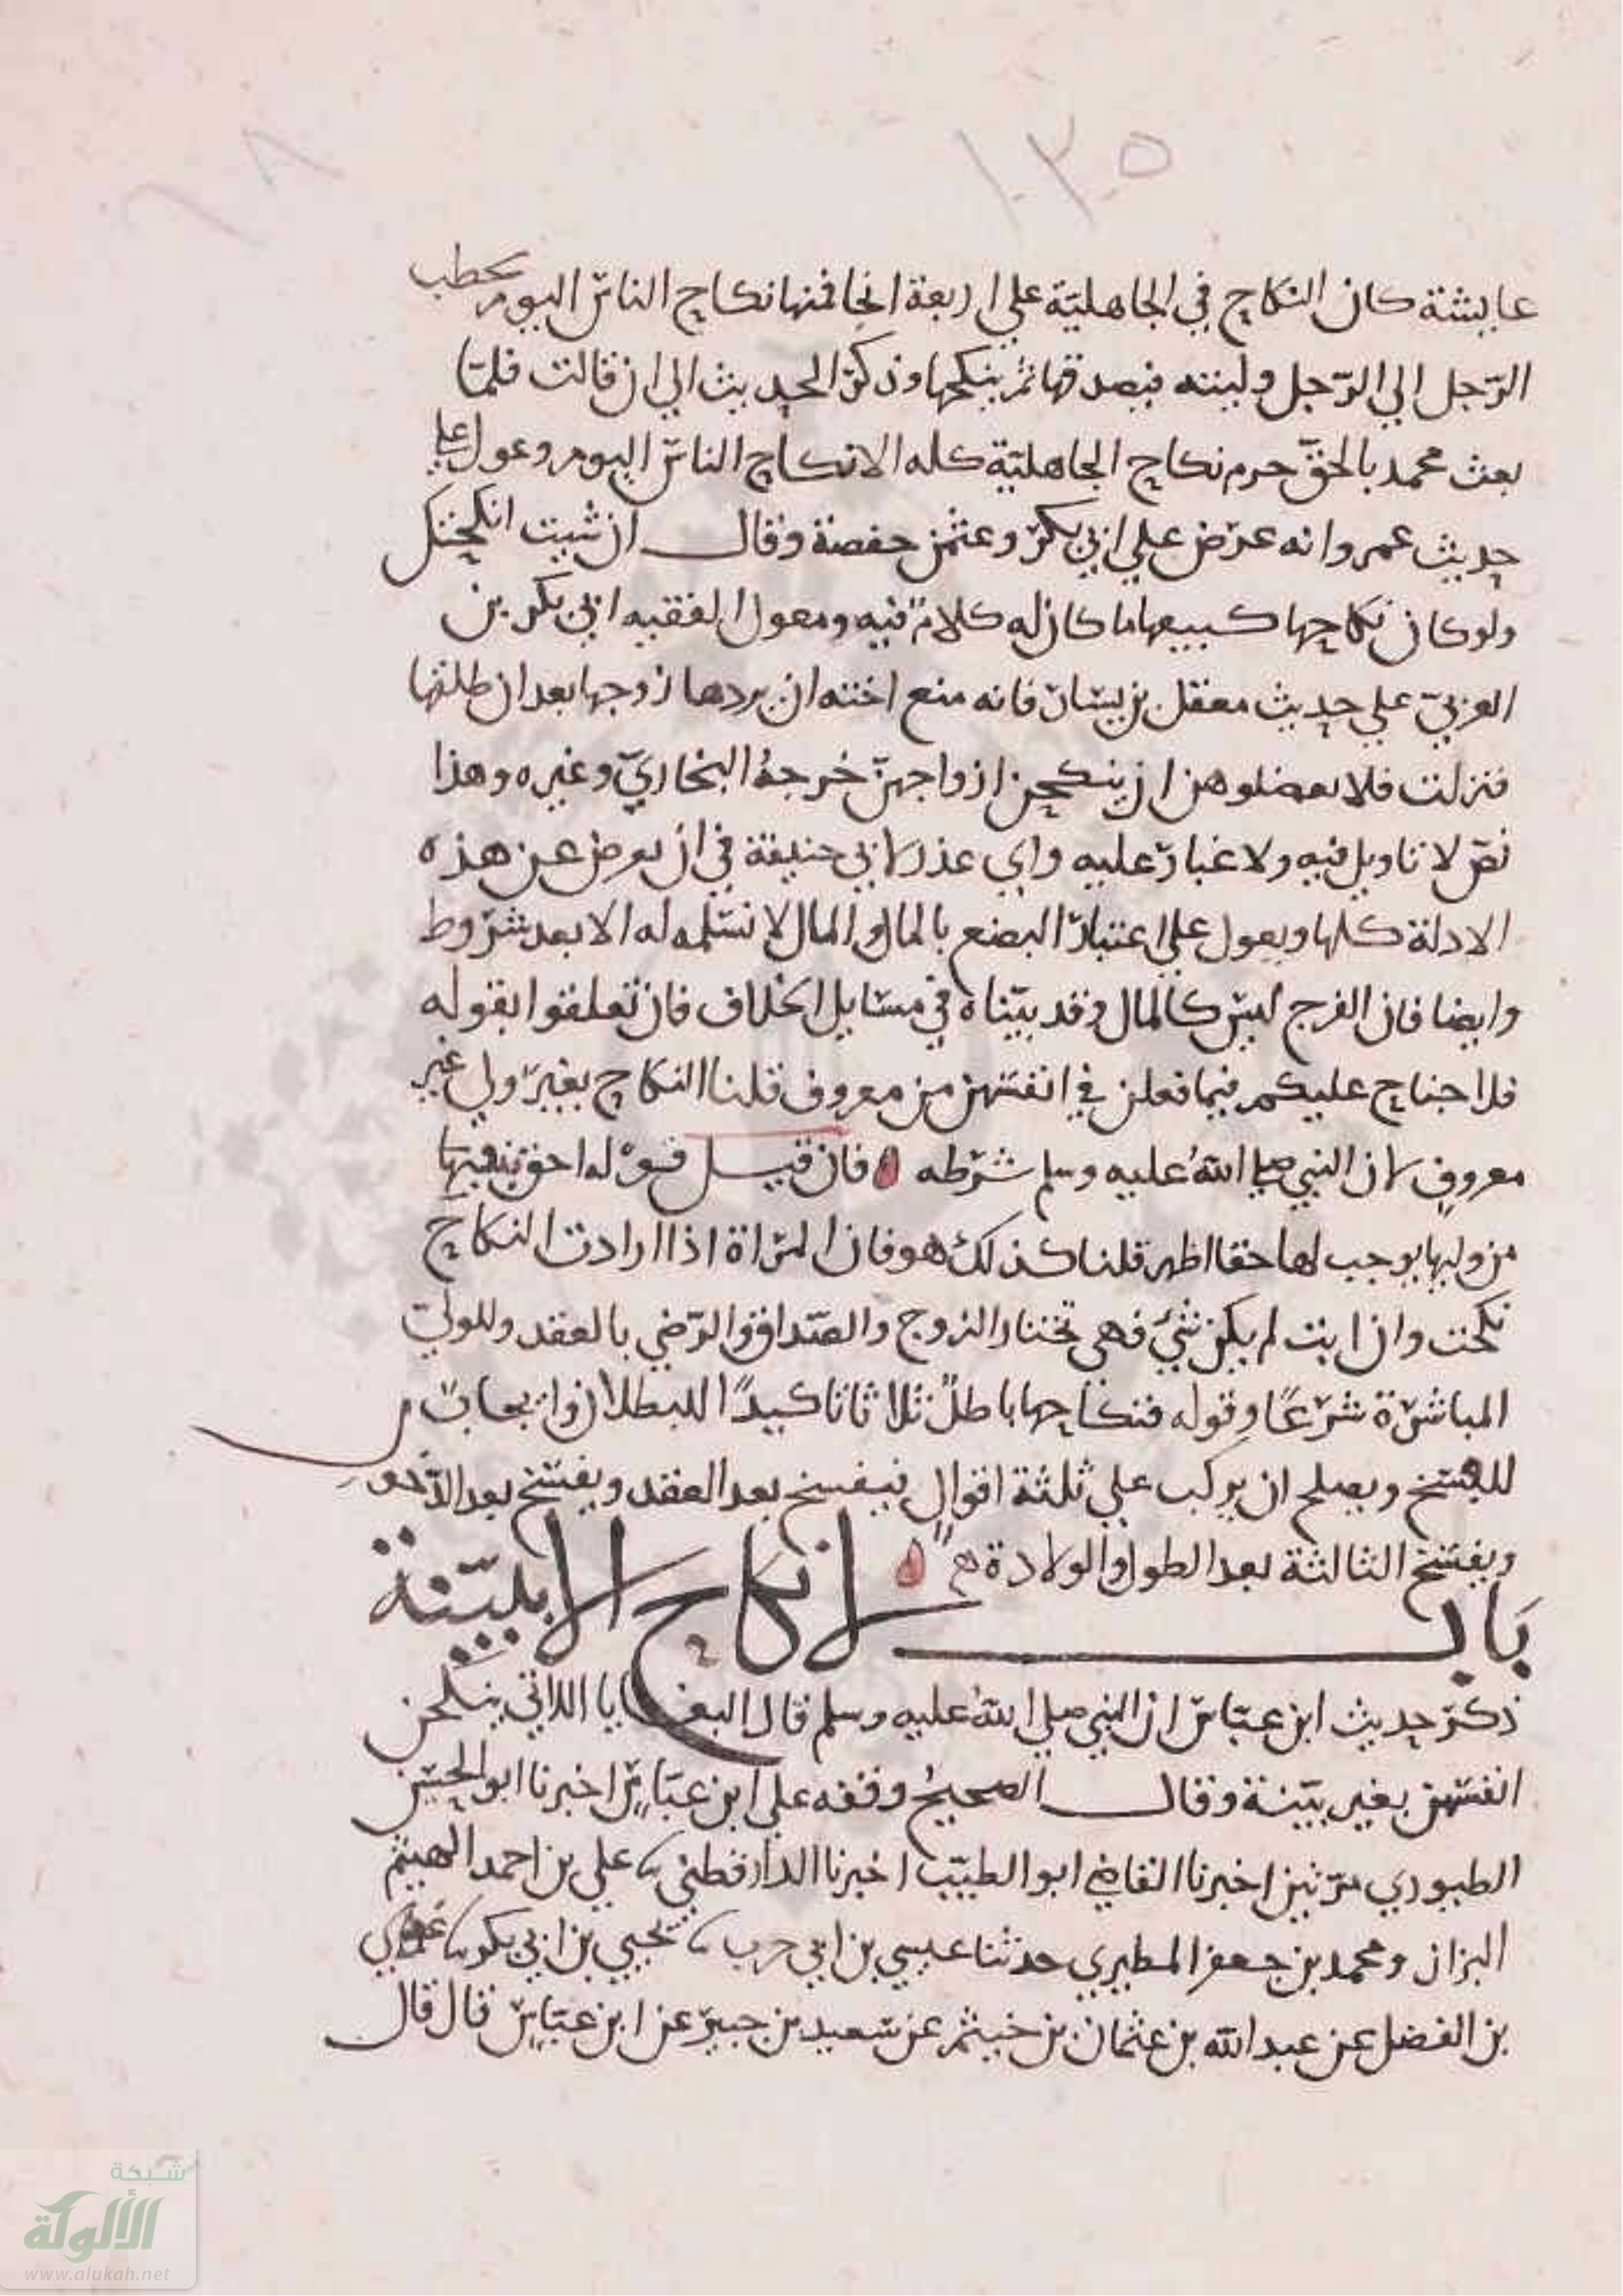 ١٣٥
٦٨
عايشة كان النكاح في الجاهلية علي اربعة انحا فمنها نكاح الناس اليوم يخطب
الرّجل الي الرّجل وليته فيصدقها ثم ينكحها وذكر الحديث الي ان قالت فلمّا
بعث محمد بالحقّ حرم نكاح الجاهليّة كله الا نكاح الناس اليوم وعول علي
حديث عمر وانه عرض علي ابي بكر وعثمن حفصة وقال ان شيت انكحتك
ولو كان نكاحها كبيعها ما كان له كلامٌ فيه ومعول الفقيه ابي بكر بن
العربيّ علي حديث معقل بن يسار فانه منع اخته ان يردها زوجها بعد ان طلقها
فنزلت فلا تعضلوهن ان ينكحن ازواجهنّ خرجهُ البخاريّ وغيره وهذا
نصّ لا تاويل فيه ولا غبار عليه واي عذر لابي حنيفة في ان يعرض عن هذه
الادلة كلها ويعول علي اعتبار البضع بالمال والمال لا نسلمه له الا بعد شروط
وايضا فان الفرج ليس كالمال وقد بيّناه في مسايل الخلاف فان تعلقوا بقوله
فلا جناح عليكم فيما فعلن في انفسهن من معروف قلنا النكاح بغير ولي غير
معروفٍ لان النبي صلي اللهُ عليه وسلم شرطه فان قيل قوله احق بنفسها
من وليها يوجب لها حقا اظهر قلنا كذلك هو فان المراة اذا ارادت النكاح
نكحت وان ابت لم يكن شيٌ فهي تختار الزوج والصّداق والرّضي بالعقد وللوليّ
المباشرة شرعًا وقوله فنكاحها باطلٌ ثلاثا تاكيدًا للبطلان وايجابًا
للفسخ ويصلح ان يركب علي ثلثة اقوالٍ فيفسخ بعد العقد ويفسخ بعد الدّخول
ويفسخ الثالثة بعد الطول والولادة
بَاب لا نكاح الا ببيّنة
ذكر حديث ابن عبّاس ان النبي صلي اللهُ عليه وسلم قال البغايا اللاتي ينكحن
انفسهن بغير بيّنة وقال الصحيحُ وقفه علي ابن عبّاسٍ اخبرنا ابو الحسن
الطيوري مرّتين اخبرنا القاضي ابو الطيّب اخبرنا الدارقطني نا علي بن احمد الهيثم
البزاز ومحمد بن جعفر المطيري حدثنا عيسي بن ابي حرب نا يحيي بن ابي بكر نا عدي
بن الفضل عن عبد الله بن عثمان بن خيثم عن سعيد بن جبير عن ابن عبّاسٍ قال قال
شبكة
الألوكة
www.alukah.net